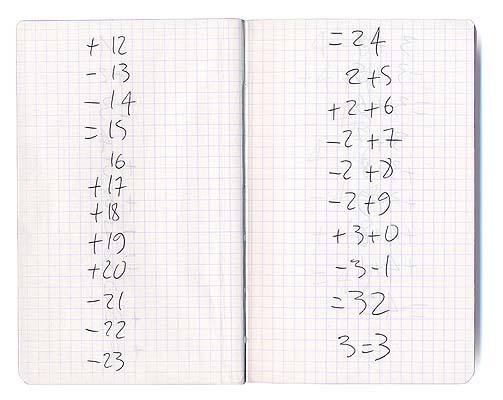 + 12
- 13
- 14
= 15
16
+17
+18
+19
+20
-21
-22
-23
= 24
2+5
+2+6
-2+7
-2+8
-2+9
+3+0
-3-1
=32
3=3